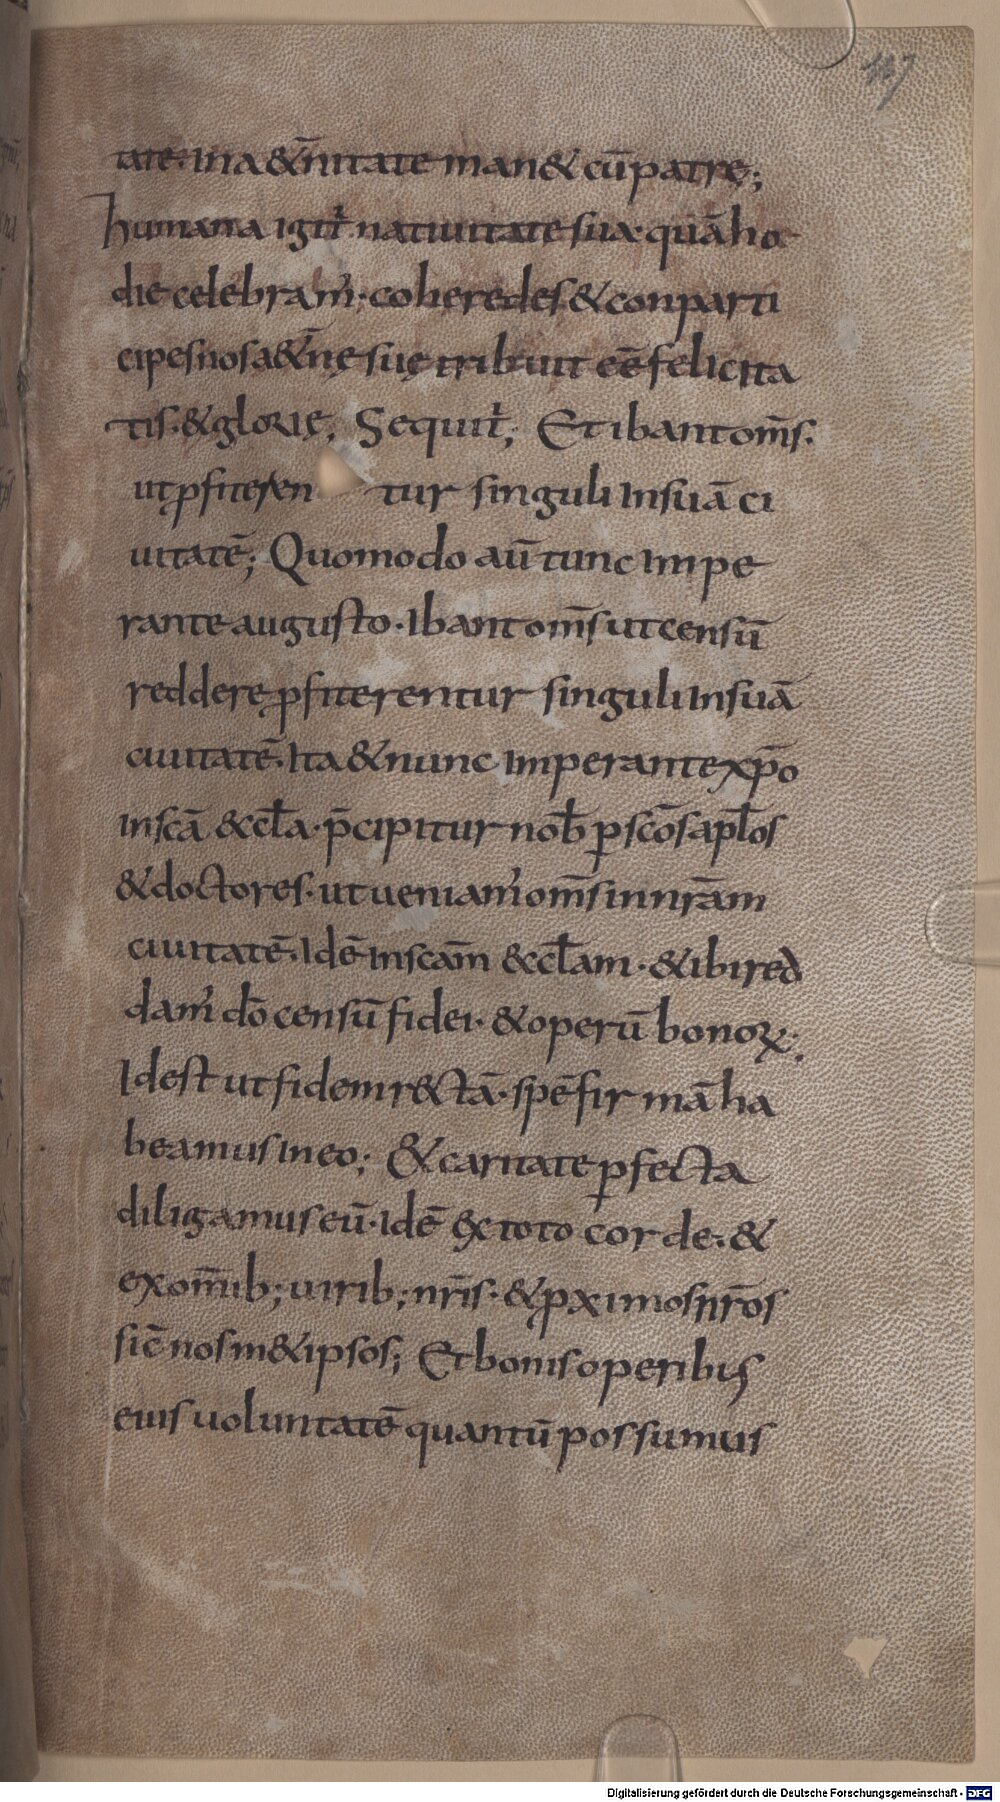 127
tate. In a&̄nitate man& cū patrę;
humana igit᷒ natiuitate sua. quā ho
die celebram᷒. coheredes & conparti
cipes nos a&̄nę suę tribuit eē felicita
tis. & glorię; Sequit᷒; Et ibant om̄s.
ut ꝓfiteren tur singuli In suā ci
uitatē; Quomodo aū tunc Impe
rante augusto. Ibant om̄s ut censū
reddere ꝓfiterentur singuli In suā
ciuitatē. Ita & nunc Imperante xp̄o
In scā & ccł̄a. p̄cipitur nob̄ ꝑ scōs apł̄os
& doctores. ut ueniam᷒ om̄s in nr̄am
ciuitatē. Idē In scām & ccł̄am. & ibi red
dam᷒ dō censū fidei. & operū bonoꝝ.
Id est ut fidem r&ctā. spē firmā ha
beamus In eo; & caritate ꝑfecta
diligamus eū. Idē ex toto corde. &
ex om̄ib; uirib; nr̄is. & ꝓximos nr̄os
sic̄ nosm&ipsos; Et bonis operibus
eius uoluntatē quantū possumus
Digitalisierung gefördert durch die Deutsche Forschungsgemeinschaft - DFG